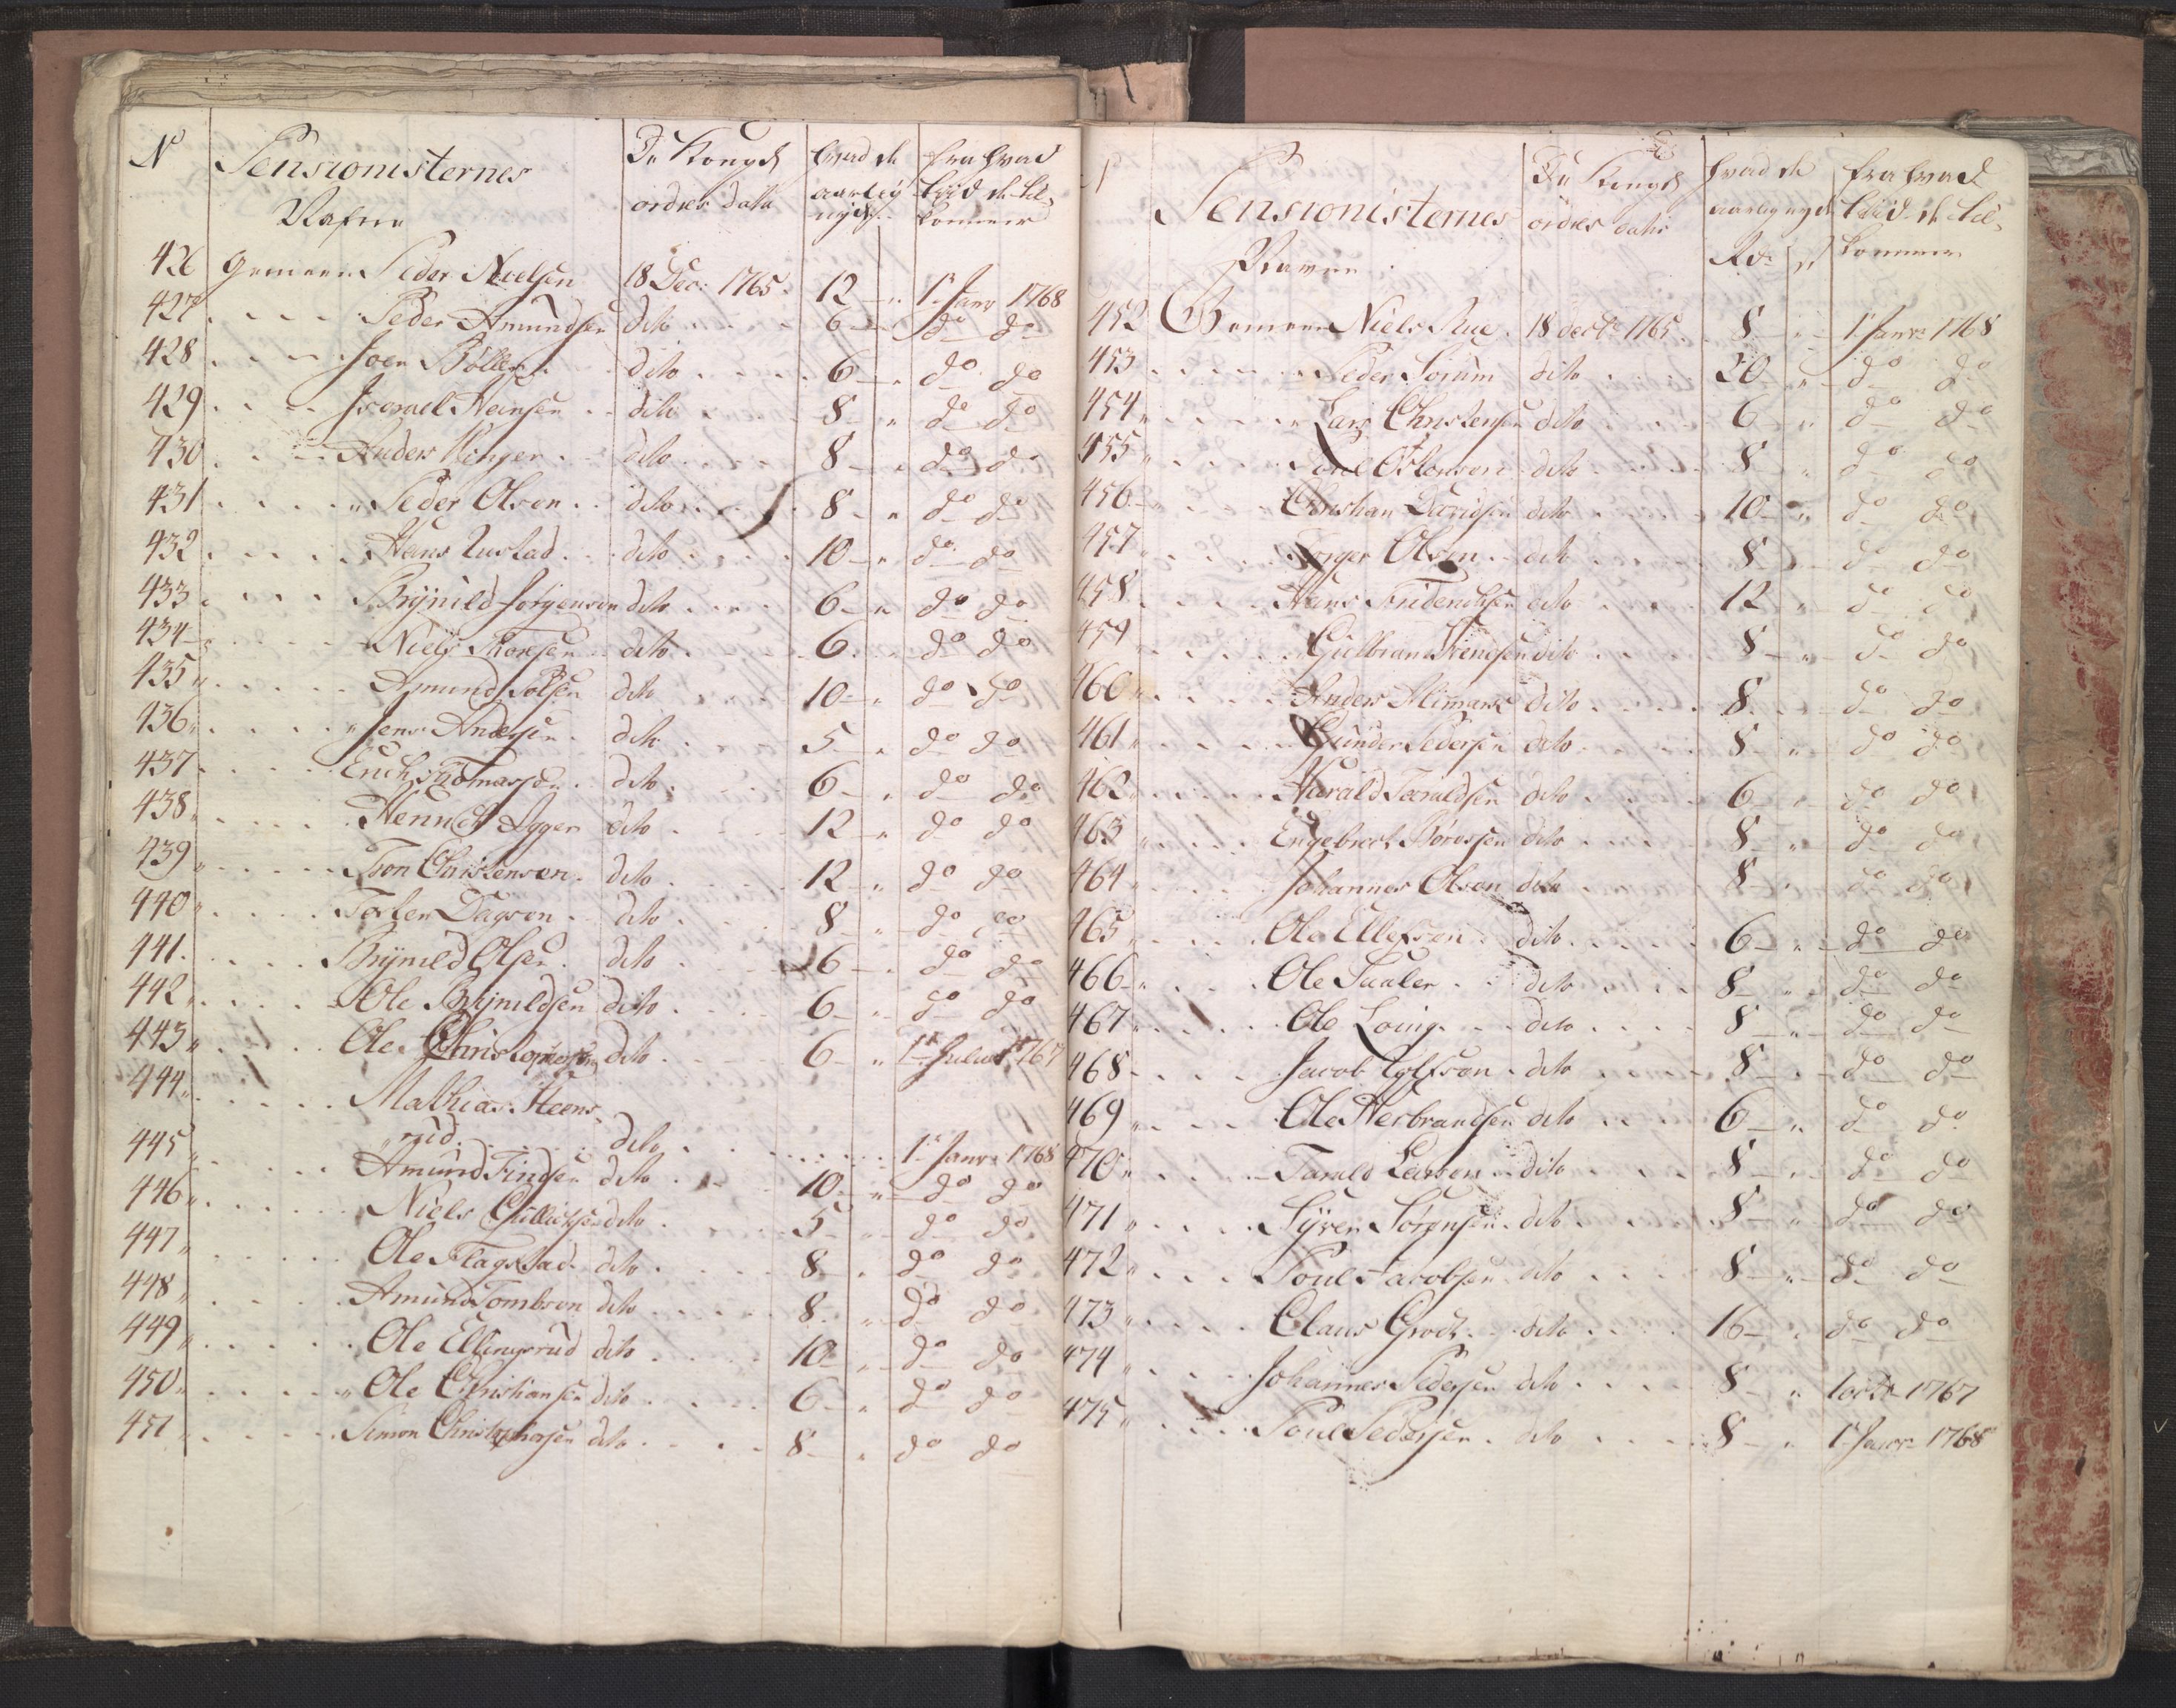 N Pensionisternes De Kongel hvad de fra hvad
Nafne ordres data aarlig tiid de til-
nyde kommer
426 Gemeen Peder Nielsen 18 Dec: 1765. 12 „ 1r Janr 1768
427 Peder Amundsen dito 6 do do
428 Joen Böller dito 6 „ do do
429 Israel Hansen dito 8 „ do do
430 Anders Ringer dito 8 „ do do
431 „ Peder Olson dito 8 „ do do
432 Hans Rustad dito 10 „ do do
433 Brÿnild Jörgenson dito 6 „ do do
434 Niels Thorsen dito 6 do do
435 Amund Polsen dito 10 „ do do
436 „ Jens Andersen dito 5 „ do do
437 Erich Thomassen dito 6 „ do do
438 Henrich Egger dito 12 „ do do
439 Tron Christenson dito 12 „ do do
440 Torsten Dagson dito 8 „ do do
441. Brÿnild Olsen dito 6 „ do do
442 Ole Brÿnildsen dito 6 „ do do
443 Ole Christophersen dito 6 „ 1r Julii 1767
444 Mathias Steens
rud dito 1r Janr 1768
445 Amund Findsen dito 10 „ do do
446 Niels Gullichsen dito 5 „ do do
447 Ole Flagstad dito 8 „ do do
448 Amund Tombson dito 8 „ do do
449 Ole Ellingsrud dito 10 „ do do
450 „ Ole Christiansen dito 6 „ do do
451 Simon Christophersen dito 8 „ do do
N Pensionisternes De Kongel hvad de fra hvad
ordres datis aarlig nyde tiid de til-
Navne Rdr s kommer
452 Gemeen Niels Rue 18 decbr 1765. 8 „ 1r Janr 1768
453 Peder Sörum dito 20 „ do do
454 „ Lars Christensen dito 6 „ do do
455 Poul Östenson dito 8 „ do do
456 Christian Davidsen dito 10 „ do do
457 Torger Olson dito 8 do do
458 Hans Friderichsen dito 12 „ do do
459 Gulbrand Svendsen dito 8 „ do do
460 Anders Alimand dito 8 do do
461 Gunder Pedersen dito 8 „ do do
462 Harald Taraldsen dito 6 „ do do
463 Engebrect Börresen dito 8 „ do do
464 Johannes Olson dito 8 „ do do
465 Ole Ellefsen dito 6 „ do do
466 Ole Sauler dito 8 „ do do
467 Ole Loeng dito 8 „ do do
468 Jacob Rolfson dito 8 „ do do
469 Ole Herbrandsen dito 6 „ do do
470 Tarald Larson dito 8 „ do do
471 Sÿver Sörensen dito 8 „ do do
472 Poul Jacobsen dito 8 „ do do
473 Claus Grodt dito 16 „ do do
474 Johannes Pedersen dito 8 „ 1 octr 1767
475 Poul Pedersen dito 8 „ 1r Janr 1768